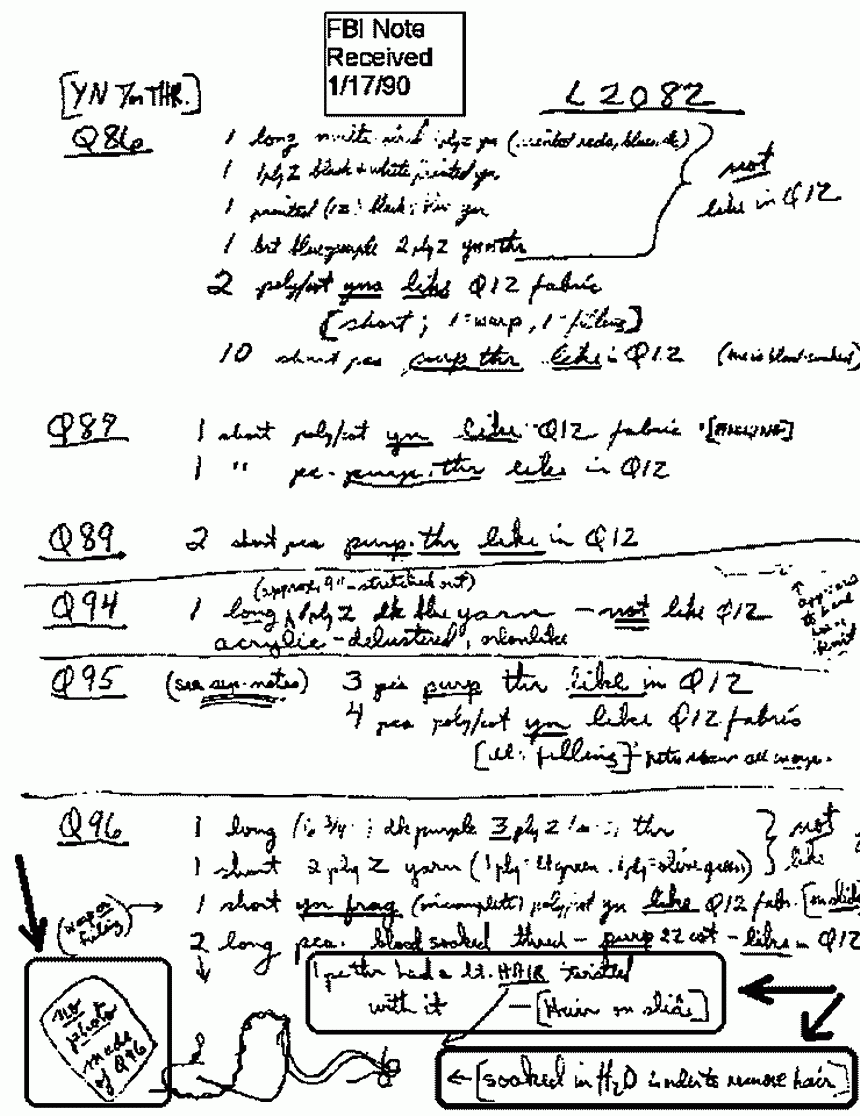 FBI Note
Received
1/17/90
[YN &/or THR.]
L2082
Q86
1 long 1 ply Z yn (reds, blues, etc)
1 1 ply Z black + white printed yn
1 printed (1Z) black yn
1 brt blue purple 2 ply Z yn or thr
not
like in Q12
2 poly/cot yns like Q12 fabric
[short; 1=warp, 1=filling]
10 short pcs purp thr like in Q12 (one is blood-soaked)
Q87 1 short poly/cot yn like Q12 fabric [FILLING]
1 " pc. purp. thr like in Q12
Q89 2 short pcs purp. thr like in Q12
(approx. 9" - stretched out)
Q94 1 long, 1 ply Z dk blue yarn - not like Q12
acrylic - delustered,
appears
to have
been
Q95 (see sep. notes) 3 pcs purp thr like in Q12
4 pcs poly/cot yn like Q12 fabric
[all: filling]
Q96 1 long dk purple 3 ply Z thr
1 short 2 ply Z yarn (1 ply = green, 1 ply = olive green)
not
like
(warp or
filling)
1 short yn frag (incomplete) poly/cot yn like Q12 fabr. [on slide
2 long pcs. blood soaked thread - purp 2Z cot - like in Q12
1 pc thr had a lt. HAIR twisted
with it - [Hair on slide]
no
photo
made
of Q96
← [soaked in H₂O in order to remove hair]